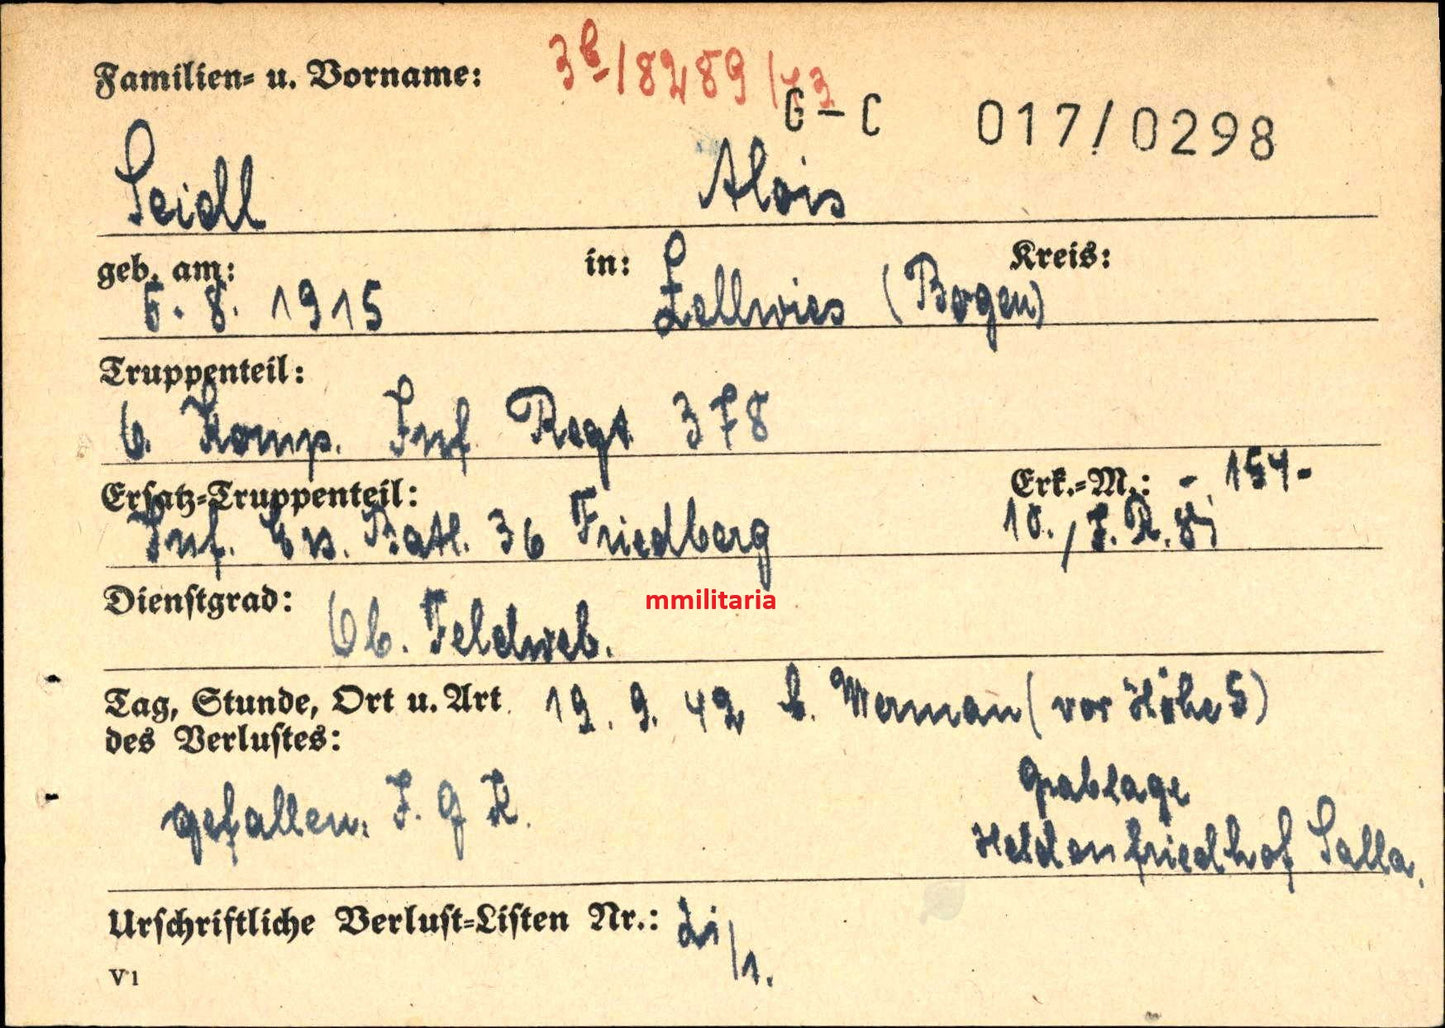 Familien- u. Vorname: 3b/8289/43
G-C 017/0298
Seidl Alois
geb. am: in: Kreis:
6. 8. 1915 Zellwies (Bogen)
Truppenteil:
6. Komp. Inf. Regt 378
Ersatz-Truppenteil: Erk.-M.: - 154-
Inf. Ers. Batl. 36 Friedberg 10./I.R.
Dienstgrad: Ob. Feldweb.
mmilitaria
Tag, Stunde, Ort u. Art 19. 9. 42 b. Werman (vor Höhe 5)
des Verlustes:
gefallen. I. G K. Grablage
Heldenfriedhof Salla.
Urschriftliche Verlust-Listen Nr.: /1.
V 1